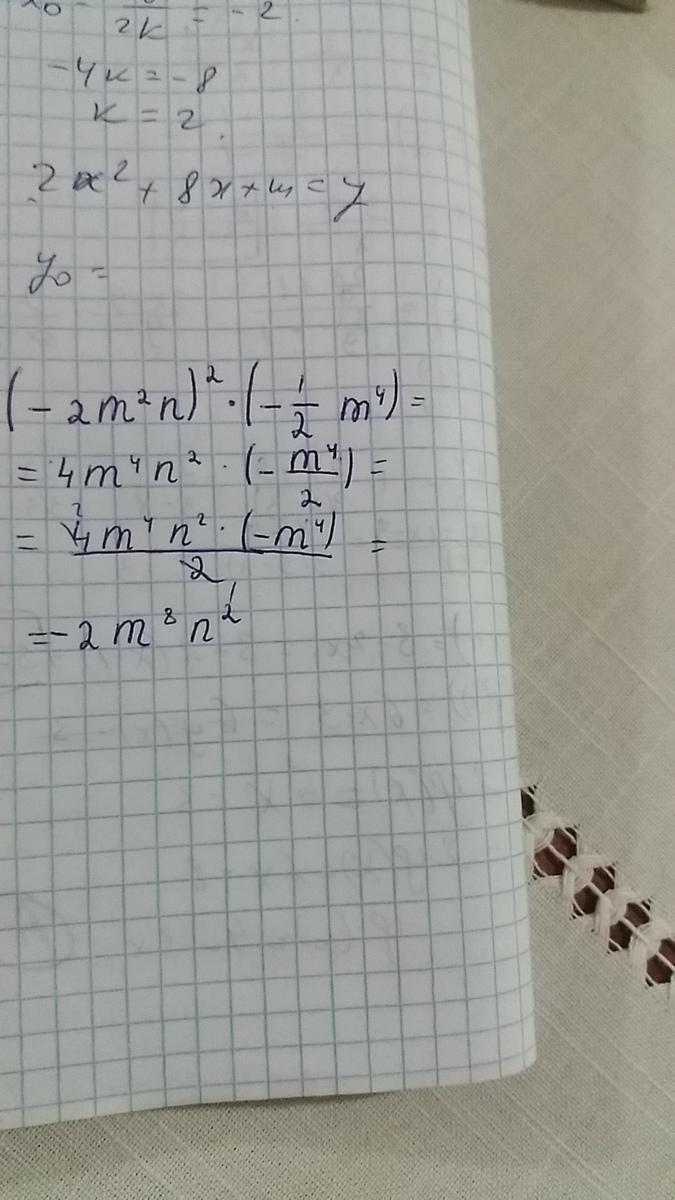 x₀ = / 2k = -2.
-4k = -8
k = 2.
2x² + 8x + m = y
y₀ =
(-2m²n)² · (-1/2 m⁴) =
= 4m⁴n² · (-m⁴/2) =
= 4m⁴n² · (-m⁴) / 2 =
= -2m⁸n²